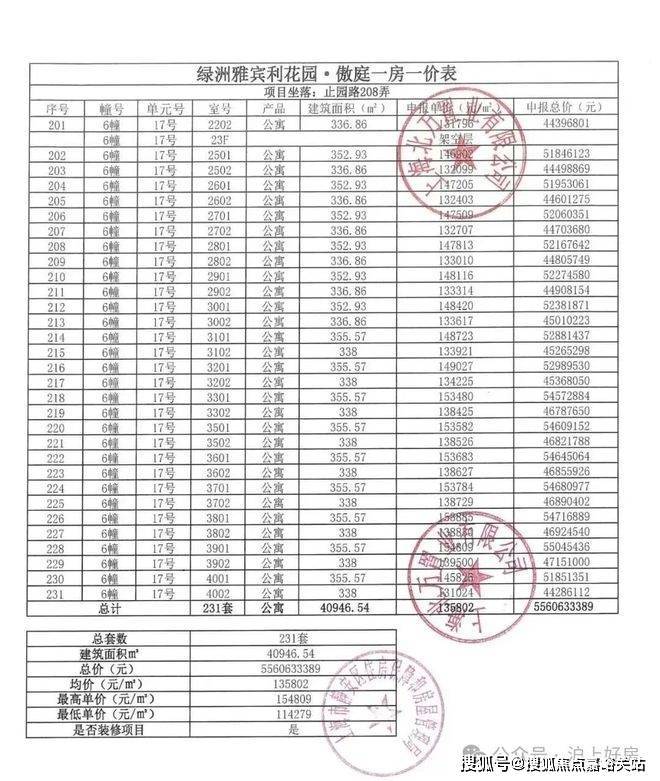 绿洲雅宾利花园·傲庭一房一价表
项目坐落：止园路208弄
序号 幢号 单元号 室号 产品 建筑面积（㎡） 申报单价（元/㎡） 申报总价（元）
201 6幢 17号 2202 公寓 336.86 131796 44396801
6幢 17号 23F 架空层
202 6幢 17号 2501 公寓 352.93 146902 51846123
203 6幢 17号 2502 公寓 336.86 132099 44498869
204 6幢 17号 2601 公寓 352.93 147205 51953061
205 6幢 17号 2602 公寓 336.86 132403 44601275
206 6幢 17号 2701 公寓 352.93 147509 52060351
207 6幢 17号 2702 公寓 336.86 132707 44703680
208 6幢 17号 2801 公寓 352.93 147813 52167642
209 6幢 17号 2802 公寓 336.86 133010 44805749
210 6幢 17号 2901 公寓 352.93 148116 52274580
211 6幢 17号 2902 公寓 336.86 133314 44908154
212 6幢 17号 3001 公寓 352.93 148420 52381871
213 6幢 17号 3002 公寓 336.86 133617 45010223
214 6幢 17号 3101 公寓 355.57 148723 52881437
215 6幢 17号 3102 公寓 338 133921 45265298
216 6幢 17号 3201 公寓 355.57 149027 52989530
217 6幢 17号 3202 公寓 338 134225 45368050
218 6幢 17号 3301 公寓 355.57 153480 54572884
219 6幢 17号 3302 公寓 338 138425 46787650
220 6幢 17号 3501 公寓 355.57 153582 54609152
221 6幢 17号 3502 公寓 338 138526 46821788
222 6幢 17号 3601 公寓 355.57 153683 54645064
223 6幢 17号 3602 公寓 338 138627 46855926
224 6幢 17号 3701 公寓 355.57 153784 54680977
225 6幢 17号 3702 公寓 338 138729 46890402
226 6幢 17号 3801 公寓 355.57 153885 54716889
227 6幢 17号 3802 公寓 338 138830 46924540
228 6幢 17号 3901 公寓 355.57 154809 55045436
229 6幢 17号 3902 公寓 338 139500 47151000
230 6幢 17号 4001 公寓 355.57 145825 51851351
231 6幢 17号 4002 公寓 338 131024 44286112
总计 231套 公寓 40946.54 135802 5560633389
上海北万置业有限公司
上海北万置业有限公司
总套数 231套
建筑面积㎡ 40946.54
总价（元） 5560633389
均价（元/㎡） 135802
最高单价（元/㎡） 154809
最低单价（元/㎡） 114279
是否装修项目 是
上海市静安区住房保障和房屋管理局
公众号·沪上好房
搜狐号@搜狐焦点嘉峪关站